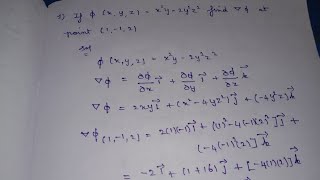 1) If φ(x,y,z) = x²y - 2y²z² find ∇φ at
point (1,-1,2)
Sol
φ(x,y,z) = x²y - 2y²z²
∇φ = ∂φ/∂x i⃗ + ∂φ/∂y j⃗ + ∂φ/∂z k⃗
∇φ = 2xy i⃗ + (x² - 4yz²) j⃗ + (-4y²z) k⃗
∇φ(1,-1,2) = 2(1)(-1) i⃗ + (1)² - 4(-1)(2)²] j⃗ +
-4(-1)²(2)] k⃗
= -2 i⃗ + (1+16) j⃗ + [-4(1)(2)] k⃗